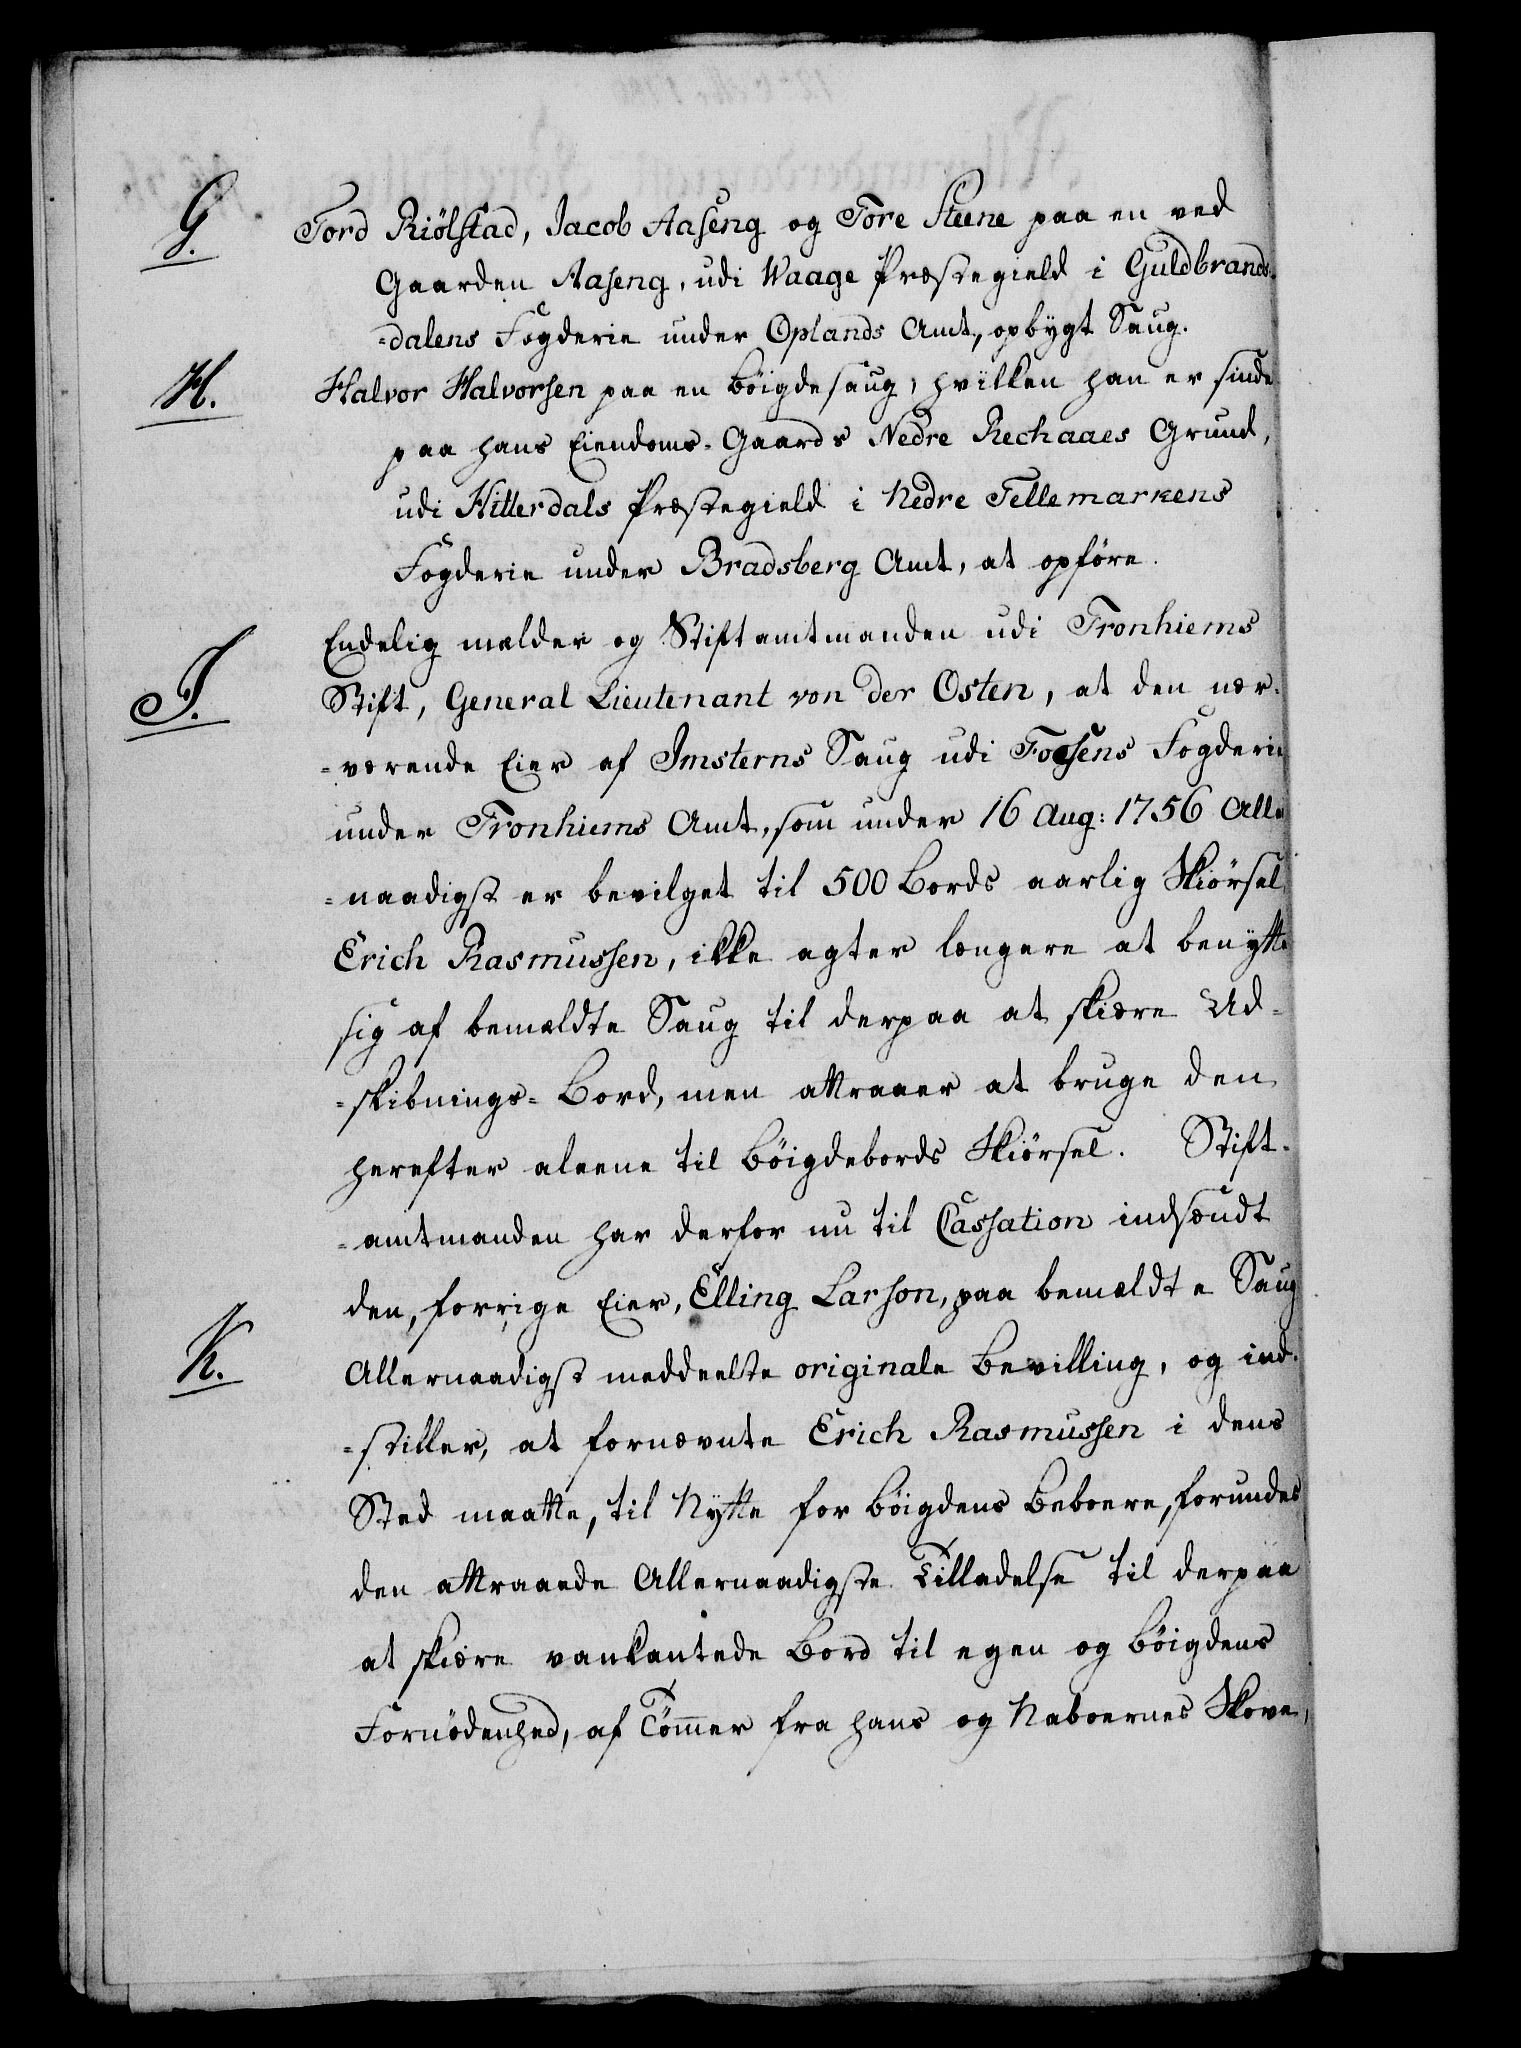 G. Tord Riölstad, Jacob Aaseng og Tore Steene paa en ved
Gaarden Aaseng, udi Waage Præstegield i Guldbrands-
=dalens Fogderie under Oplands Amt, opbygt Saug.
H. Halvor Halvorsen paa en Böigdesaug, hvilken han er sindet
paa hans Eiendoms-Gaards Nedre Rechaaes Grund,
udi Hitterdals Præstegield i Nedre Tellemarkens
Fogderie under Bradsberg Amt, at opföre.
Endelig melder og Stiftamtmanden udi Tronhiems
I. Stift, General Lieutenant von der Osten, at den nær-
=værende Eier af Imsterns Saug udi Fosens Fogderie
under Tronhiems Amt, som under 16 Aug: 1756 Aller
=naadigst er bevilget til 500 Bords aarlig Skiörsel,
Erich Rasmussen, ikke agter længere at benytte
sig af bemældte Saug til derpaa at skiære Ud=
=skibnings-Bord, men attraaer at bruge den
herefter aleene til Böigdebords Skiörsel. Stift-
=amtmanden har derfor nu til Cassation indsendt
den, forrige Eier, Elling Larson, paa bemældte Saug
K. Allernaadigst meddeelte originale Bevilling, og ind-
=stiller, at fornævnte Erich Rasmussen i dens
Sted maatte, til Nytte for Böigdens Beboere, forundes
den attraaede Allernaadigste Tilladelse til derpaa
at skiære vankantede Bord til egen og Böigdens
Fornödenhed, af Tömmer fra hans og Naboernes Skove,